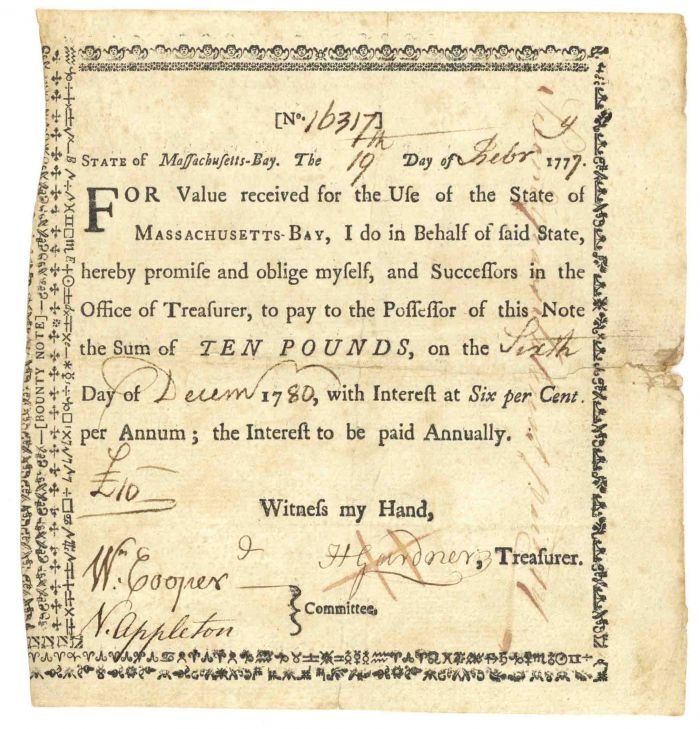 [No. 16317]
STATE of Maſſachuſetts-Bay. The 19th Day of Febry 1777.
FOR Value received for the Uſe of the State of
MASSACHUSETTS-BAY, I do in Behalf of ſaid State,
hereby promiſe and oblige myſelf, and Succeſſors in the
Office of Treaſurer, to pay to the Poſſeſſor of this Note
the Sum of TEN POUNDS, on the Sixth
Day of Decem 1780, with Intereſt at Six per Cent.
per Annum; the Intereſt to be paid Annually.
£10
Witneſs my Hand,
H Gardner, Treaſurer.
Wm. Cooper
N. Appleton
Committee.
[BOUNTY NOTE]